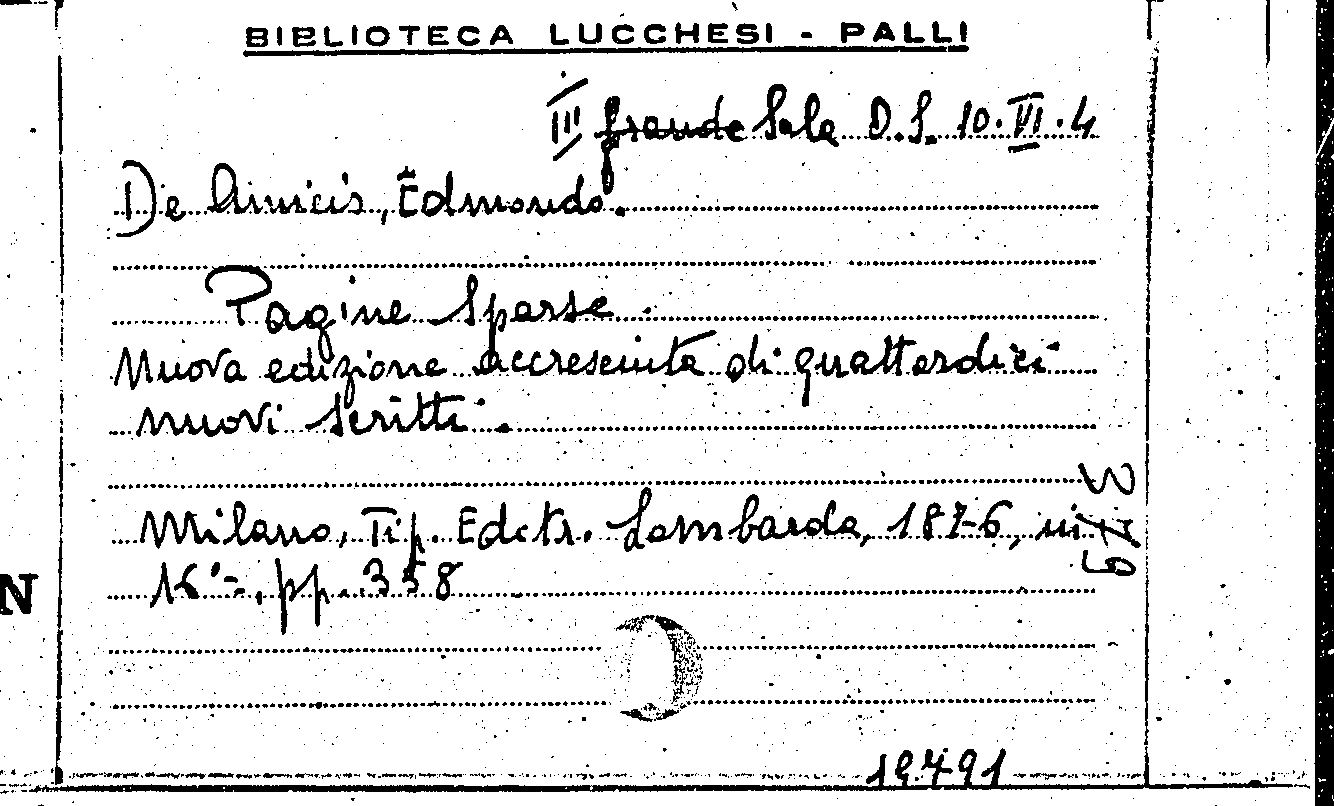 BIBLIOTECA LUCCHESI - PALLI
III grande Sala D.S. 10.VI.4
De Amicis, Edmondo.
Pagine Sparse.
Nuova edizione accresciuta di quattordici
nuovi scritti.
Milano, Tip. Editr. Lombarda, 1876, in
16°-, pp. 358
N
19791